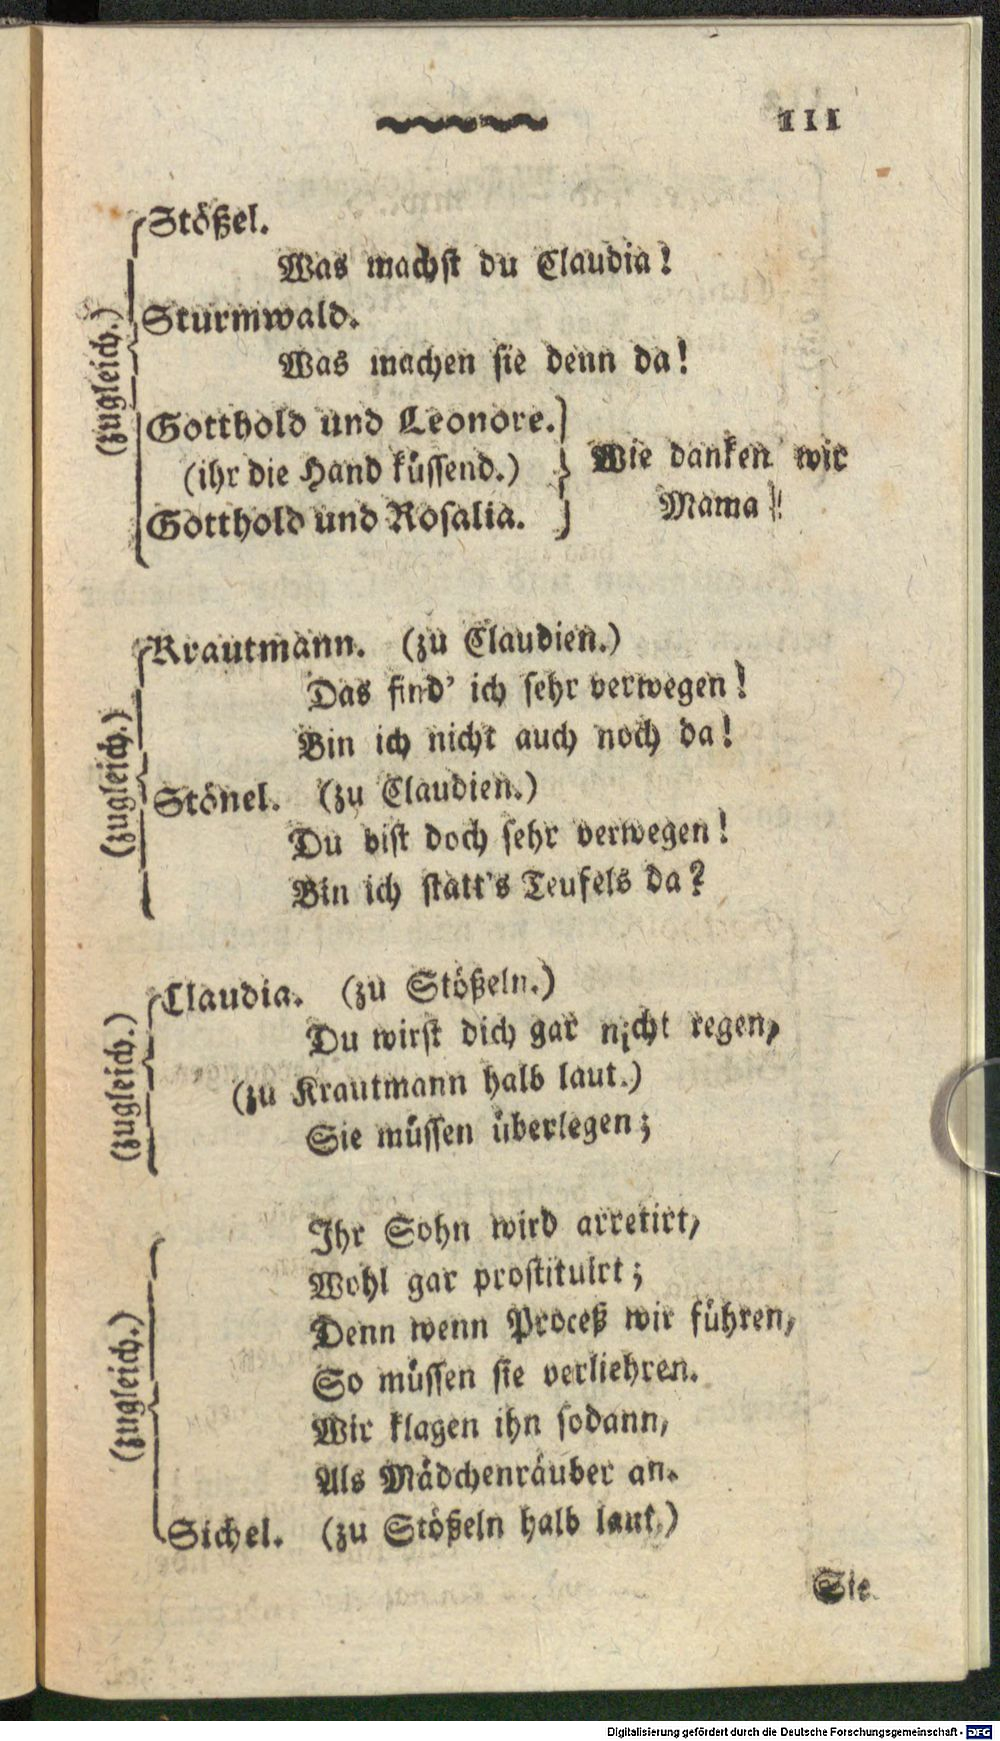 111
Stößel.
Was machst du Claudia!
Sturmwald.
Was machen sie denn da!
(zugleich.)
Gotthold und Leonore.
(ihr die Hand küssend.)
Gotthold und Rosalia.
Wie danken wir
Mama!
Krautmann. (zu Claudien.)
Das find' ich sehr verwegen!
Bin ich nicht auch noch da!
(zugleich.)
Stönel. (zu Claudien.)
Du bist doch sehr verwegen!
Bin ich statt's Teufels da?
Claudia. (zu Stößeln.)
Du wirst dich gar nicht regen,
(zugleich.)
(zu Krautmann halb laut.)
Sie müssen überlegen;
Ihr Sohn wird arretirt,
Wohl gar prostituirt;
Denn wenn Proceß wir führen,
So müssen sie verliehren.
(zugleich.)
Wir klagen ihn sodann,
Als Mädchenräuber an.
Sichel. (zu Stößeln halb laut.)
Sie
Digitalisierung gefördert durch die Deutsche Forschungsgemeinschaft - DFG